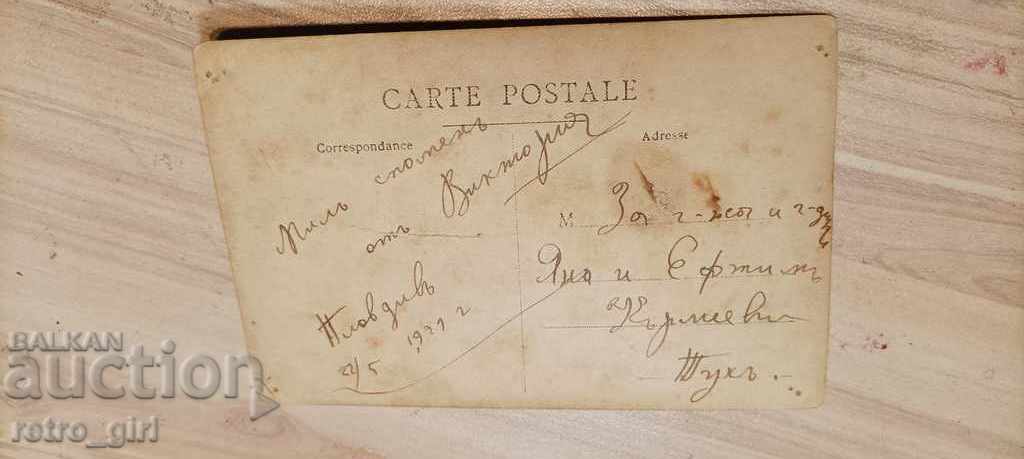 CARTE POSTALE
Correspondance
Adresse
Милъ споменъ
отъ Виктория
Пловдивъ
1921 г
М За г-жа и г-нъ
Яна и Ефтимъ
Кърмеви
Тукъ.
BALKAN
auction
retro_girl